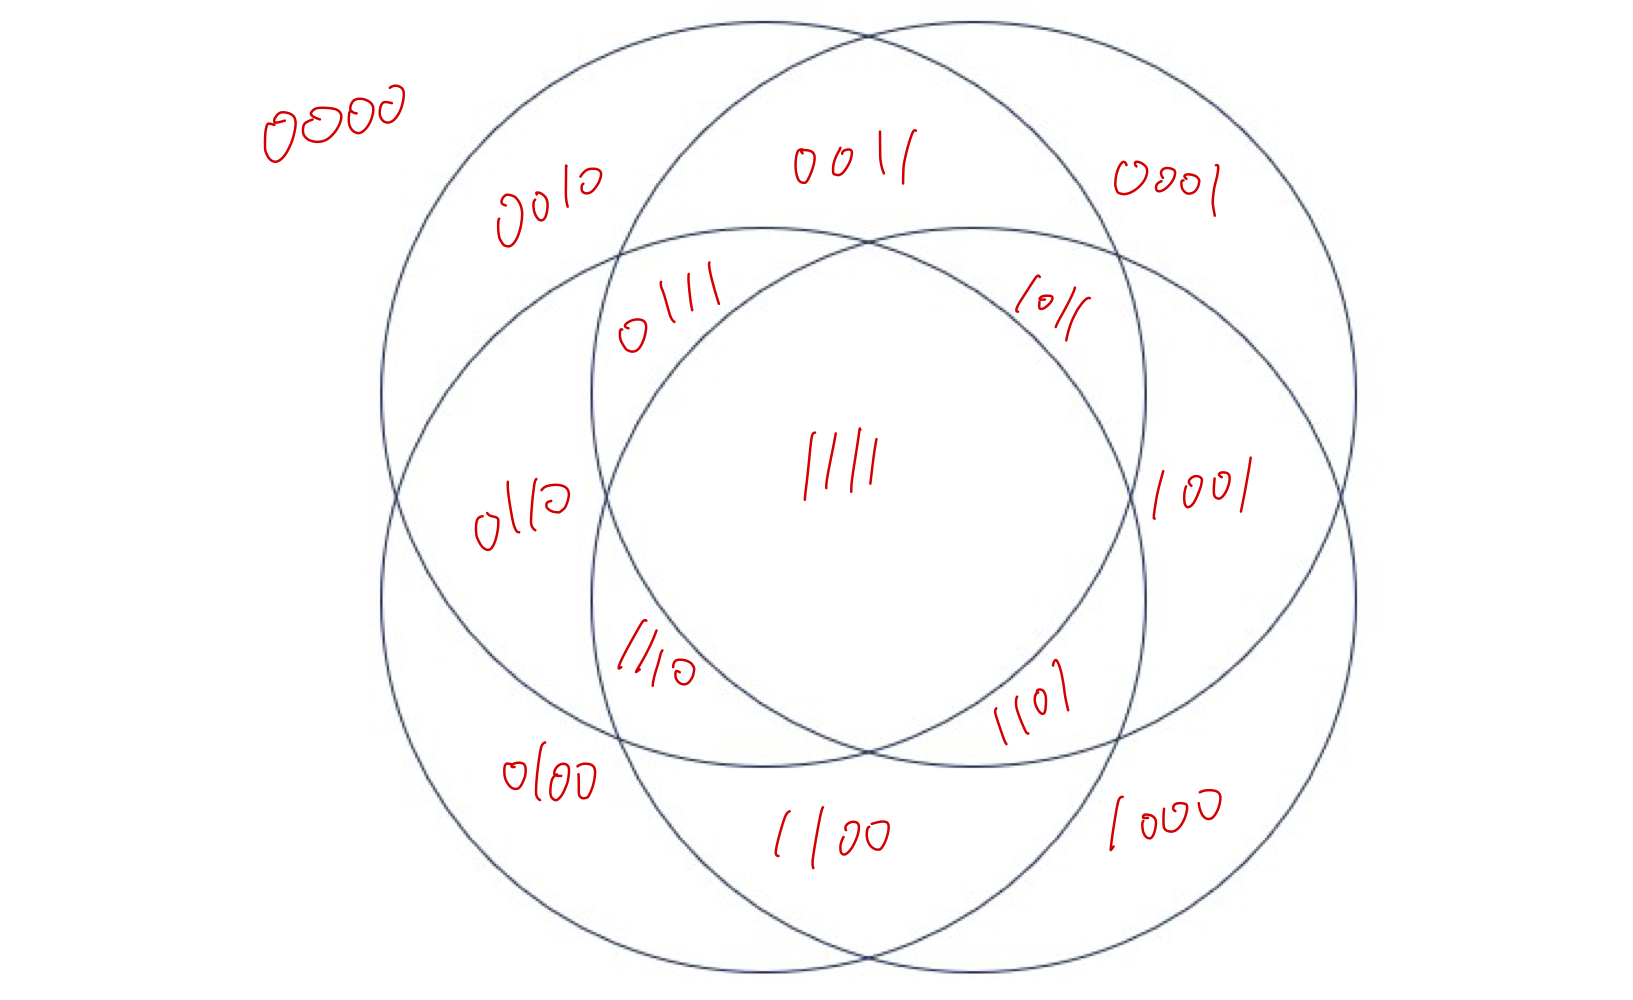 0000
0010
0011
0001
0111
1011
1111
0110
1001
1110
1101
0100
1100
1000